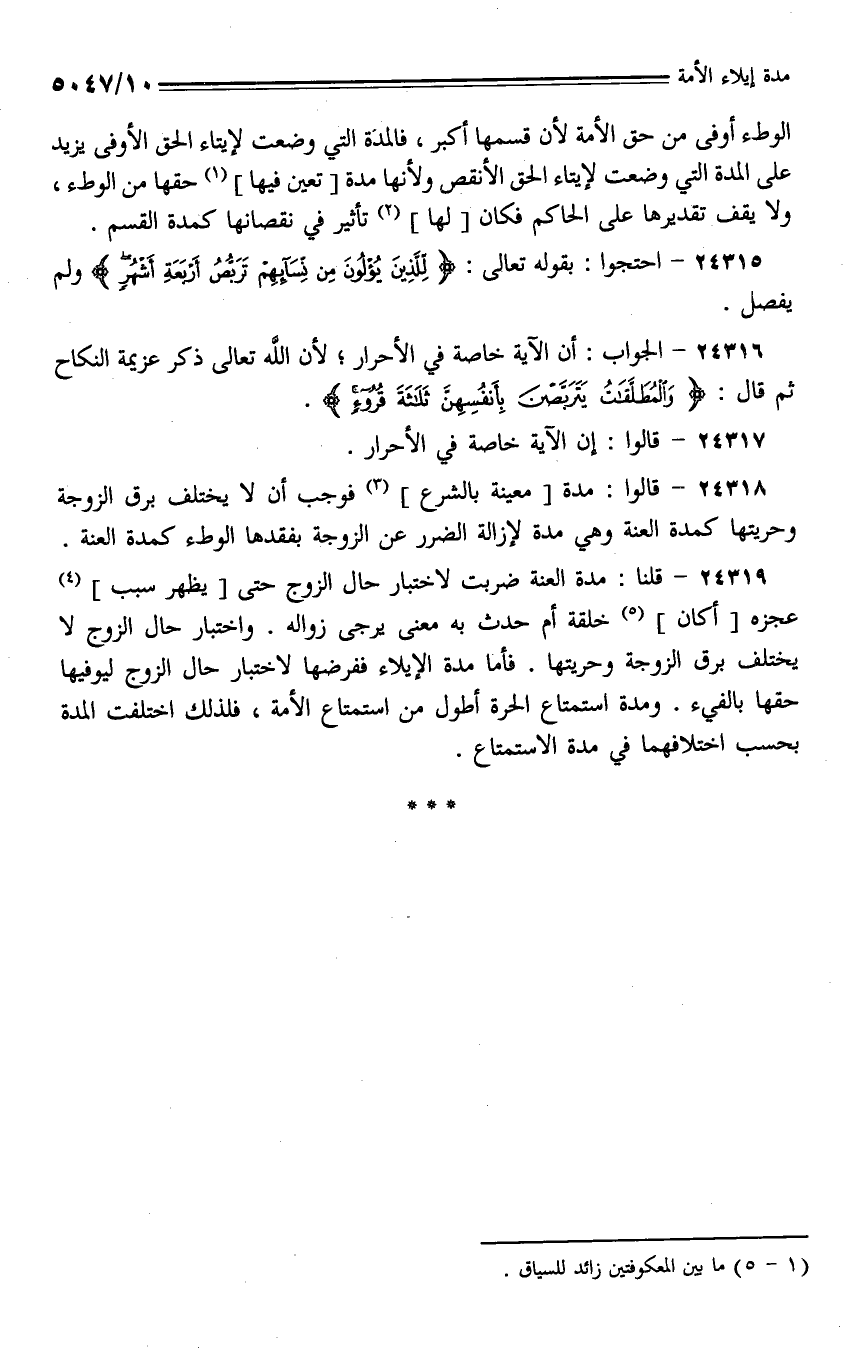 مدة إيلاء الأمة ٥٠٤٧/١٠
الوطء أوفى من حق الأمة لأن قسمها أكبر ، فالمدة التي وضعت لإيتاء الحق الأوفى يزيد
على المدة التي وضعت لإيتاء الحق الأنقص ولأنها مدة [ تعين فيها ] (١) حقها من الوطء ،
ولا يقف تقديرها على الحاكم فكان [ لها ] (٢) تأثير في نقصانها كمدة القسم .
٢٤٣١٥ - احتجوا : بقوله تعالى : ﴿ لِّلَّذِينَ يُؤْلُونَ مِن نِّسَآئِهِمْ تَرَبُّصُ أَرْبَعَةِ أَشْهُرٍۖ ﴾ ولم
يفصل .
٢٤٣١٦ - الجواب : أن الآية خاصة في الأحرار ؛ لأن اللَّه تعالى ذكر عزيمة النكاح
ثم قال : ﴿ وَٱلْمُطَلَّقَٰتُ يَتَرَبَّصْنَ بِأَنفُسِهِنَّ ثَلَٰثَةَ قُرُوٓءٍۚ ﴾ .
٢٤٣١٧ - قالوا : إن الآية خاصة في الأحرار .
٢٤٣١٨ - قالوا : مدة [ معينة بالشرع ] (٣) فوجب أن لا يختلف برق الزوجة
وحريتها كمدة العنة وهي مدة لإزالة الضرر عن الزوجة بفقدها الوطء كمدة العنة .
٢٤٣١٩ - قلنا : مدة العنة ضربت لاختبار حال الزوج حتى [ يظهر سبب ] (٤)
عجزه [ أكان ] (٥) خلقة أم حدث به معنى يرجى زواله . واختبار حال الزوج لا
يختلف برق الزوجة وحريتها . فأما مدة الإيلاء ففرضها لاختبار حال الزوج ليوفيها
حقها بالفيء . ومدة استمتاع الحرة أطول من استمتاع الأمة ، فلذلك اختلفت المدة
بحسب اختلافهما في مدة الاستمتاع .
* * *
(١ - ٥) ما بين المعكوفتين زائد للسياق .